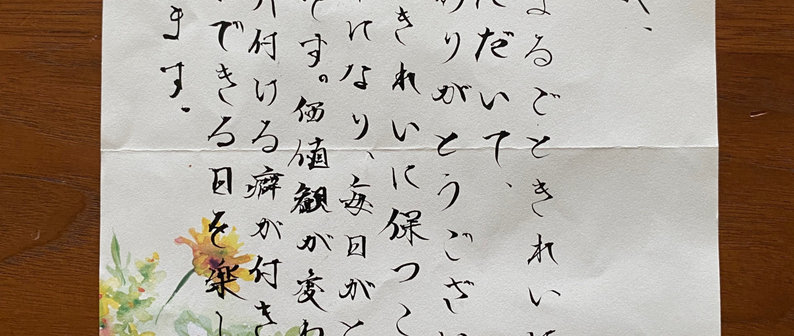 、
まるごときれいに
ただいて、
ありがとうござい
きれいに保つこ
になり、毎日がと
です。価値観が変わ
片付ける癖が付き
できる日を楽し
ます。